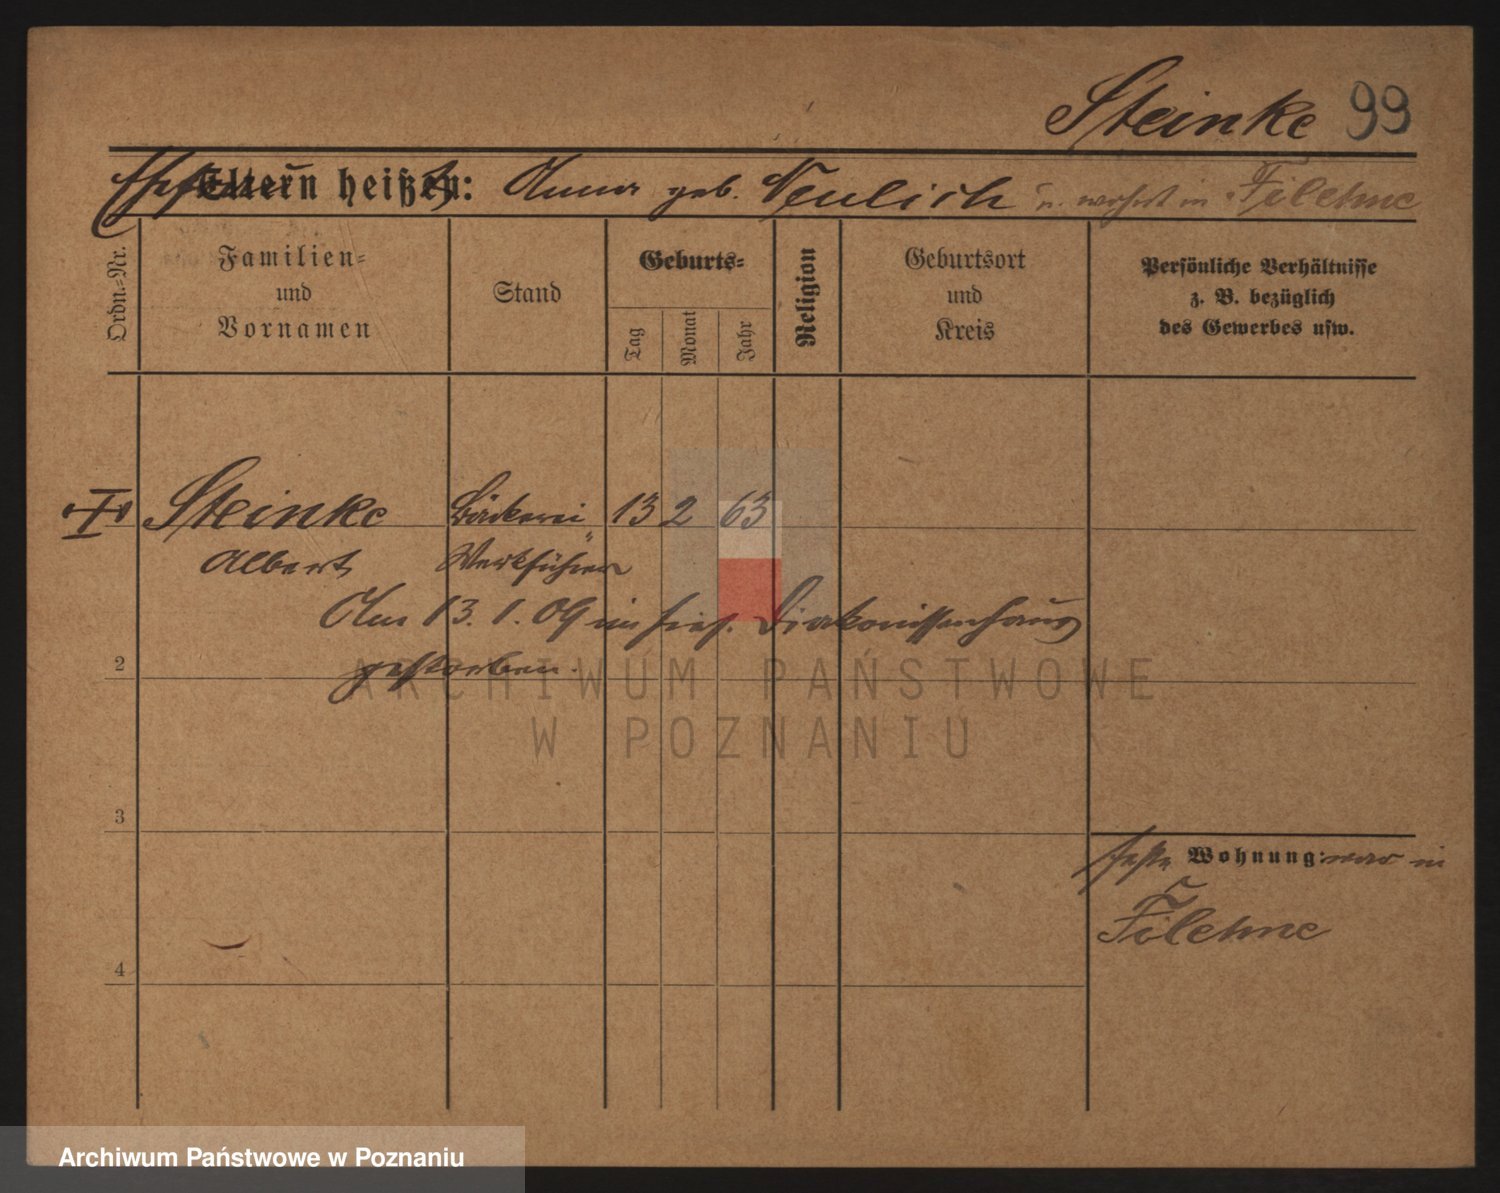 Steinke 99
Ehefrau Eltern heißen: Anna geb. Neulich u. wohnt in Filehne
Ordn.-Nr.
Familien-
und
Vornamen
Stand
Geburts-
Tag
Monat
Jahr
Religion
Geburtsort
und
Kreis
Persönliche Verhältnisse
z. B. bezüglich
des Gewerbes usw.
Steinke Bäckerei 13 2 63
Albert Werkführer
Am 13. 1. 09 im hies. Diakonissenhaus
gestorben.
2
3
4
feste Wohnung: war in
Filehne
ARCHIWUM PAŃSTWOWE
W POZNANIU
Archiwum Państwowe w Poznaniu